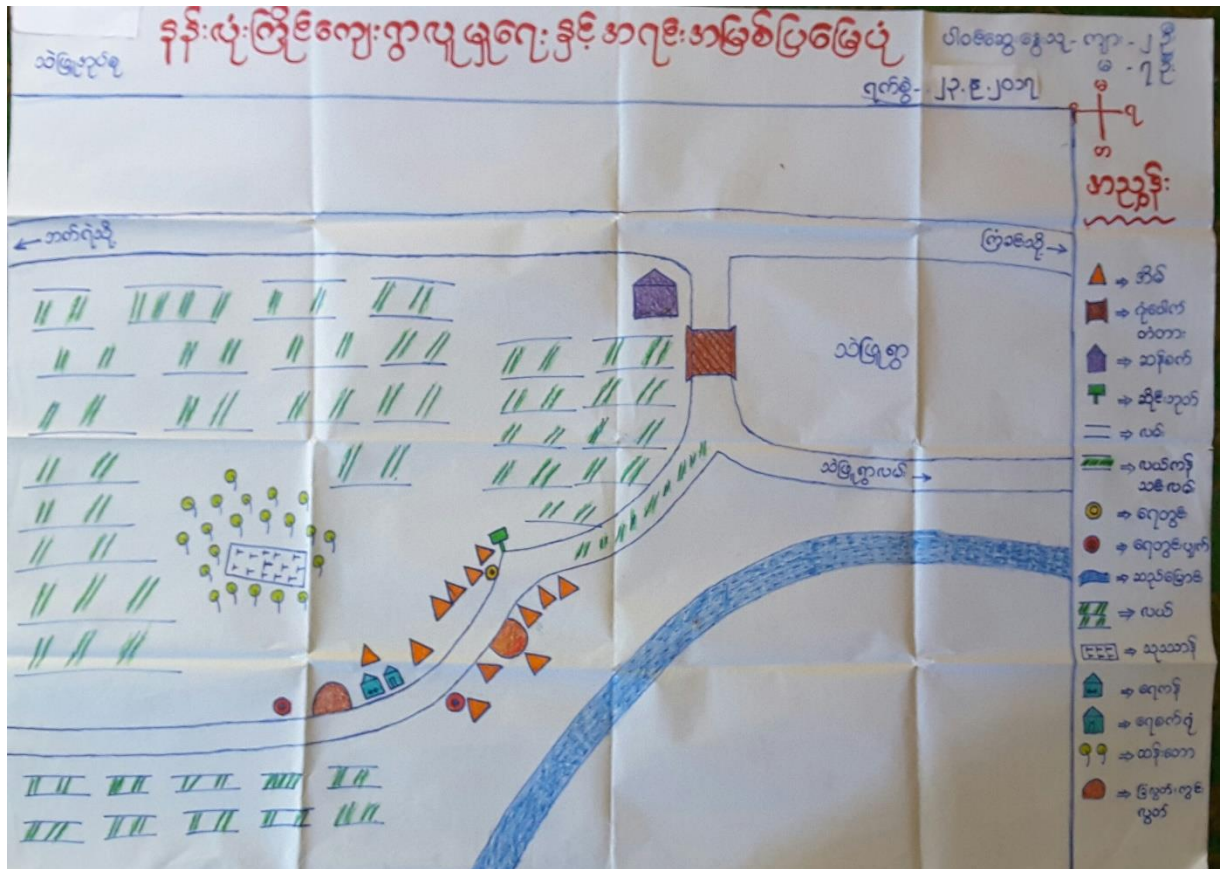 နန်းလုံးကြိုင်ကျေးရွာလူမှုရေးနှင့်အရင်းအမြစ်ပြမြေပုံ
သဲဖြူအုပ်စု
ပါဝင်ဆွေးနွေးသူ - ကျား - ၂ ဦး
မ - ၇ ဦး
ရက်စွဲ - ၂၃.၉.၂၀၁၇
အညွှန်း
← ဘတ်ရဲသို့
ကြံခင်းသို့ →
သဲဖြူရွာ
သဲဖြူရွာလမ်း →
⇒ အိမ်
⇒ ဂုံးပေါက်
တံတား
⇒ ဆန်စက်
⇒ ဆိုင်းဘုတ်
⇒ လမ်း
⇒ လယ်ကန်
သင်းလမ်း
⇒ ရေတွင်း
⇒ ရေတွင်းပျက်
⇒ ဆည်မြောင်း
⇒ လယ်
⇒ သုဿာန်
⇒ ရေကန်
⇒ ရေစက်ရုံ
⇒ ထန်းတော
⇒ မြေလွတ်၊ ကွင်း
လွတ်